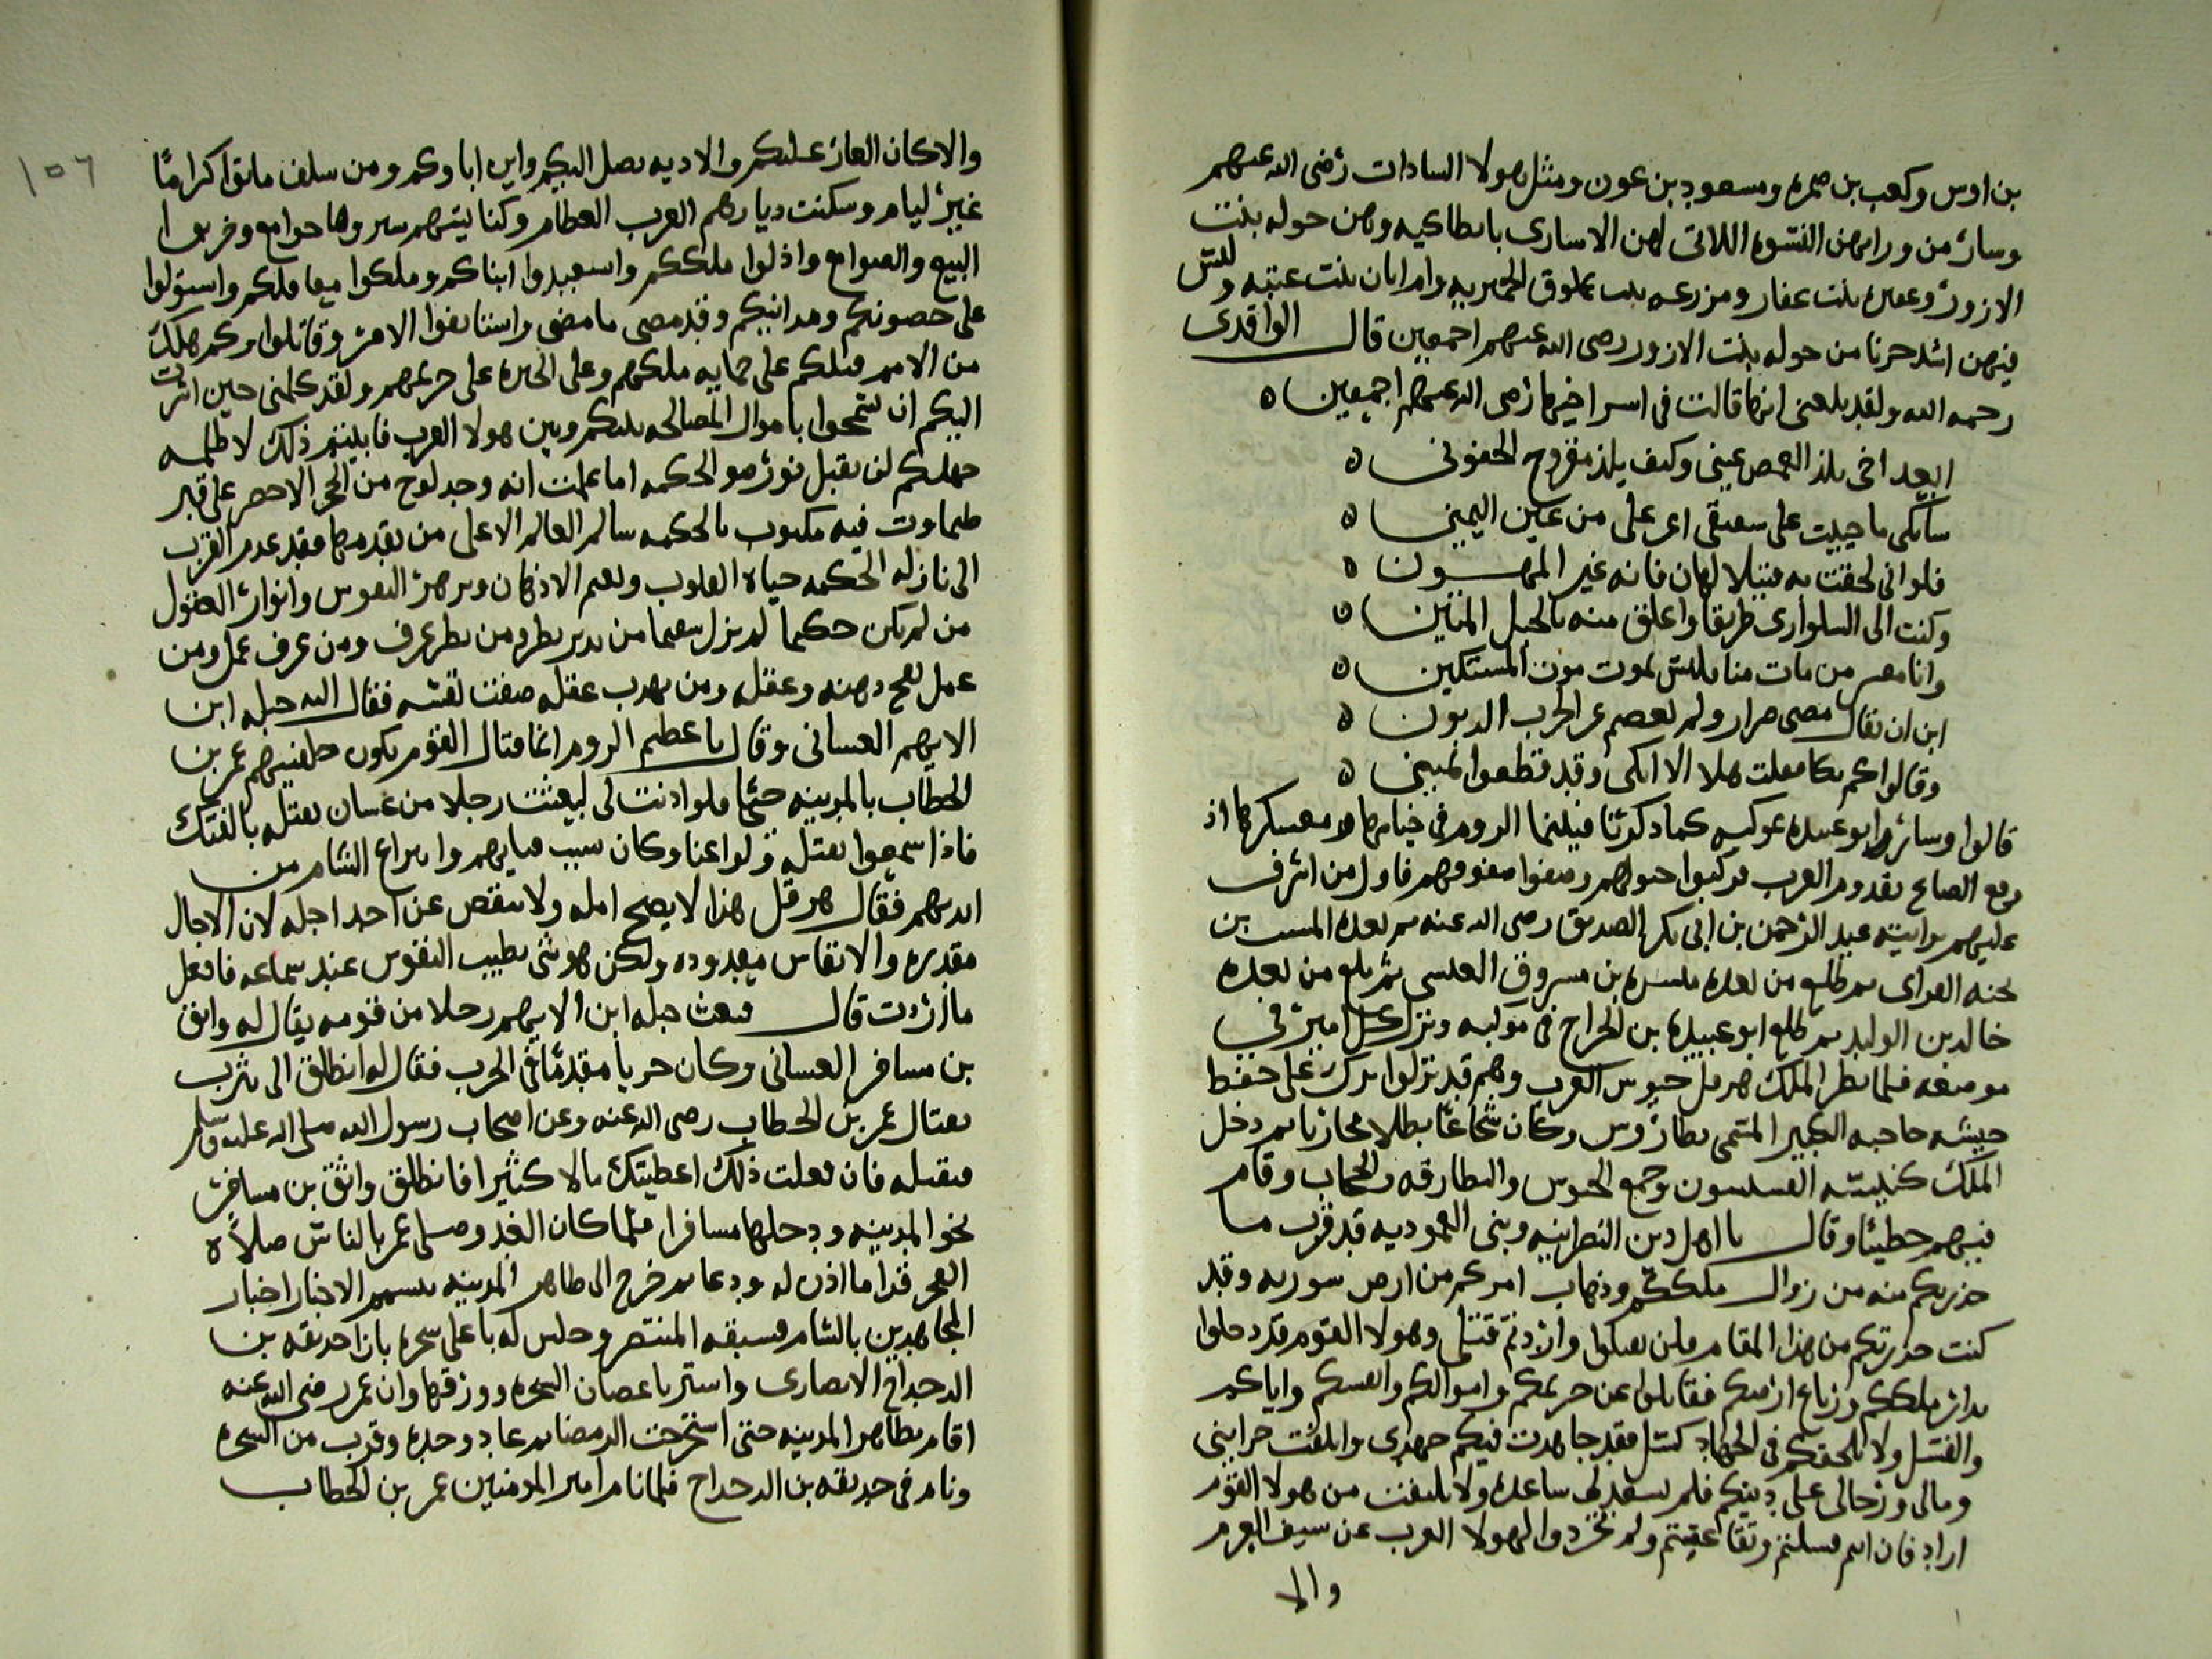 بن اوس وكعب بن ضمره ومسعود بن عون ومثل هولا السادات رضى الله عنهم
وسار من ورايهن النسوه اللاتى لهن الاسارى بانطاكيه وهن خوله بنت
الازور وعفيره بنت عفار ومزروعه بنت عملوق الحميريه وام ابان بنت عتبه وليس
فيهن اشد حزنا من خوله بنت الازور رضى الله عنهم اجمعين قال الواقدى
رحمه الله ولقد بلغنى انها قالت فى اسر اخيها رضى الله عنهم اجمعين ه
ابعد اخى يلذ الغمض عينى وكيف يلذ مقروح الجفونى ه
سابكى ما حييت على شقيقى اعز على من عين اليمينى ه
فلو انى لحقت به قتيلا لهان فانه غير المهون ه
وكنت الى السلو ارى طريقا واعلق منه بالحبل المتين ه
وانا معشر من مات منا فليس يموت موت المستكين ه
ابن ان يقال مضى ضرار ولم يعصم عن الحرب الزبون ه
وقالوا كم بكا فقلت هلا الا ابكى وقد قطعوا يمينى ه
قالوا وسار ابو عبيده بموكبه كما ذكرنا فبينما الروم فى خيامها ومعسكرها اذ
وقع الصايح بقدوم العرب فركبوا خيولهم وصفوا صفوفهم فاول من اشرف
عليهم برايته عبد الرحمن بن ابى بكر الصديق رضى الله عنه ثم بعده المسيب بن
نجيه الفزارى ثم طلع من بعده ميسره بن مسروق العبسى ثم طلع من بعده
خالد بن الوليد ثم طلع ابو عبيده بن الجراح فى موكبه ونزل كل امير فى
موضعه فلما نظر الملك هرقل جيوش العرب وهم قد نزلوا ترك على حفظ
جيشه حاجبه الكبير المسمى بطارروس وكان شجاعا بطلا مجازيا ثم دخل
الملك كنيسته القسيسون وجمع الجيوش والبطارقه والحجاب وقام
فيهم خطيبا وقال يا اهل دين النصرانيه وبنى المعموديه قد قرب ما
حذرتكم منه من زوال ملككم وذهاب امركم من ارض سوريه وقد
كنت حذرتكم من هذا المقام فلن تقبلوا واردتم قتلى وهولا القوم قد دخلوا
بدار ملككم وزباع ارضكم فقاتلوا عن حريمكم واموالكم وانفسكم واياكم
والفشل ولا يلحقكم فى الجهاد كسل فقد جاهدت فيكم جهدى واتلفت خزاينى
ومالى ورجالى على دينكم فلم يسعد لى ساعده ولا بلغت من هولا القوم
اراد فان انم فشلتم وتقاعيتم ولم تجردوا لهولا العرب عن سيف العزم
والا
١٥٦
والا كان العار عليكم والاذيه تصل اليكم واين اباوكم ومن سلف ماتوا كراما
غير ليام وسكنت ديارهم العرب العظام وكنايسهم صيروها جوامع وخربوا
البيع والصوامع واذلوا ملككم واستعبدوا ابناكم وملكوا معاقلكم واستولوا
على حصونكم ومداينكم وقد مضى ما مضى واستانفوا الامر وقاتلوا وكم هلك
من الامم قبلكم على حمايه ملكهم وعلى الحيره على حريمهم ولقد كلمنى حين اشرت
اليكم ان تسمحوا باموال المصالحه بينكم وبين هولا العرب فابيتم ذلك لا ظلمه
جهلكم لن تقبل نور ضو الحكمه اما علمت انه وجد لوح من الحجر الاحمر على قبر
طيماوت فيه مكتوب بالحكمه سالم العالم الاعلى من تقدمها فقد عدم القرب
الى نازله الحكمه حياه القلوب ونعم الاذهان وبرهر النفوس وانوار العقول
من لم يكن حكيما لم يزل سقيما من تدبر نظر ومن نظر عرف ومن عرف عمل ومن
عمل نجح ذهنه وعقله ومن تهذب عقله صفت نفسه فقال اليه جبله ابن
الايهم الغسانى وقال يا عظيم الروم انما قتال القوم يكون خليفتهم عمر بن
الخطاب بالمدينه حتما فلو اذنت لى لبعثت رجلا من غسان يقتله بالفتك
فاذا سمعوا بقتله ولوا عنا وكان سبب فنايهم وانتزاع الشام من
ايديهم فقال هرقل هذا لا يصح امله ولا ينقص عن احد اجله لان الاجال
مقدره والانفاس معدوده ولكن هو شى يطيب النفوس عند سماعه فافعل
ما اردت قال فبعث جبله ابن الايهم رجلا من قومه يقال له واثق
بن مسافر الغسانى وكان حريا مقدما فى الحرب فقال له انطلق الى يثرب
بقتال عمر بن الخطاب رضى الله عنه وعن اصحاب رسول الله صلى الله عليه وسلم
فتقتله فان فعلت ذلك اعطيتك مالا كثيرا فانطلق واثق بن مسافر
نحو المدينه ودخلها مسافرا فلما كان الغد وصلى عمر بالناس صلاه
الفجر قدام اذن له ودعا ثم خرج الى ظاهر المدينه يتسمم الاخبار اخبار
المجاهدين بالشام فسبقه المنتصر وجلس له باعلى شجره بازا حديقه بن
الدحداح الانصارى واستتر باغصان الشجره وورقها وان عمر رضى الله عنه
اقام بظاهر المدينه حتى استحرت الرمضا ثم عاد وحده وقرب من الشجره
ونام فى حديقه بن الدحداح فلما نام امير المومنين عمر بن الخطاب